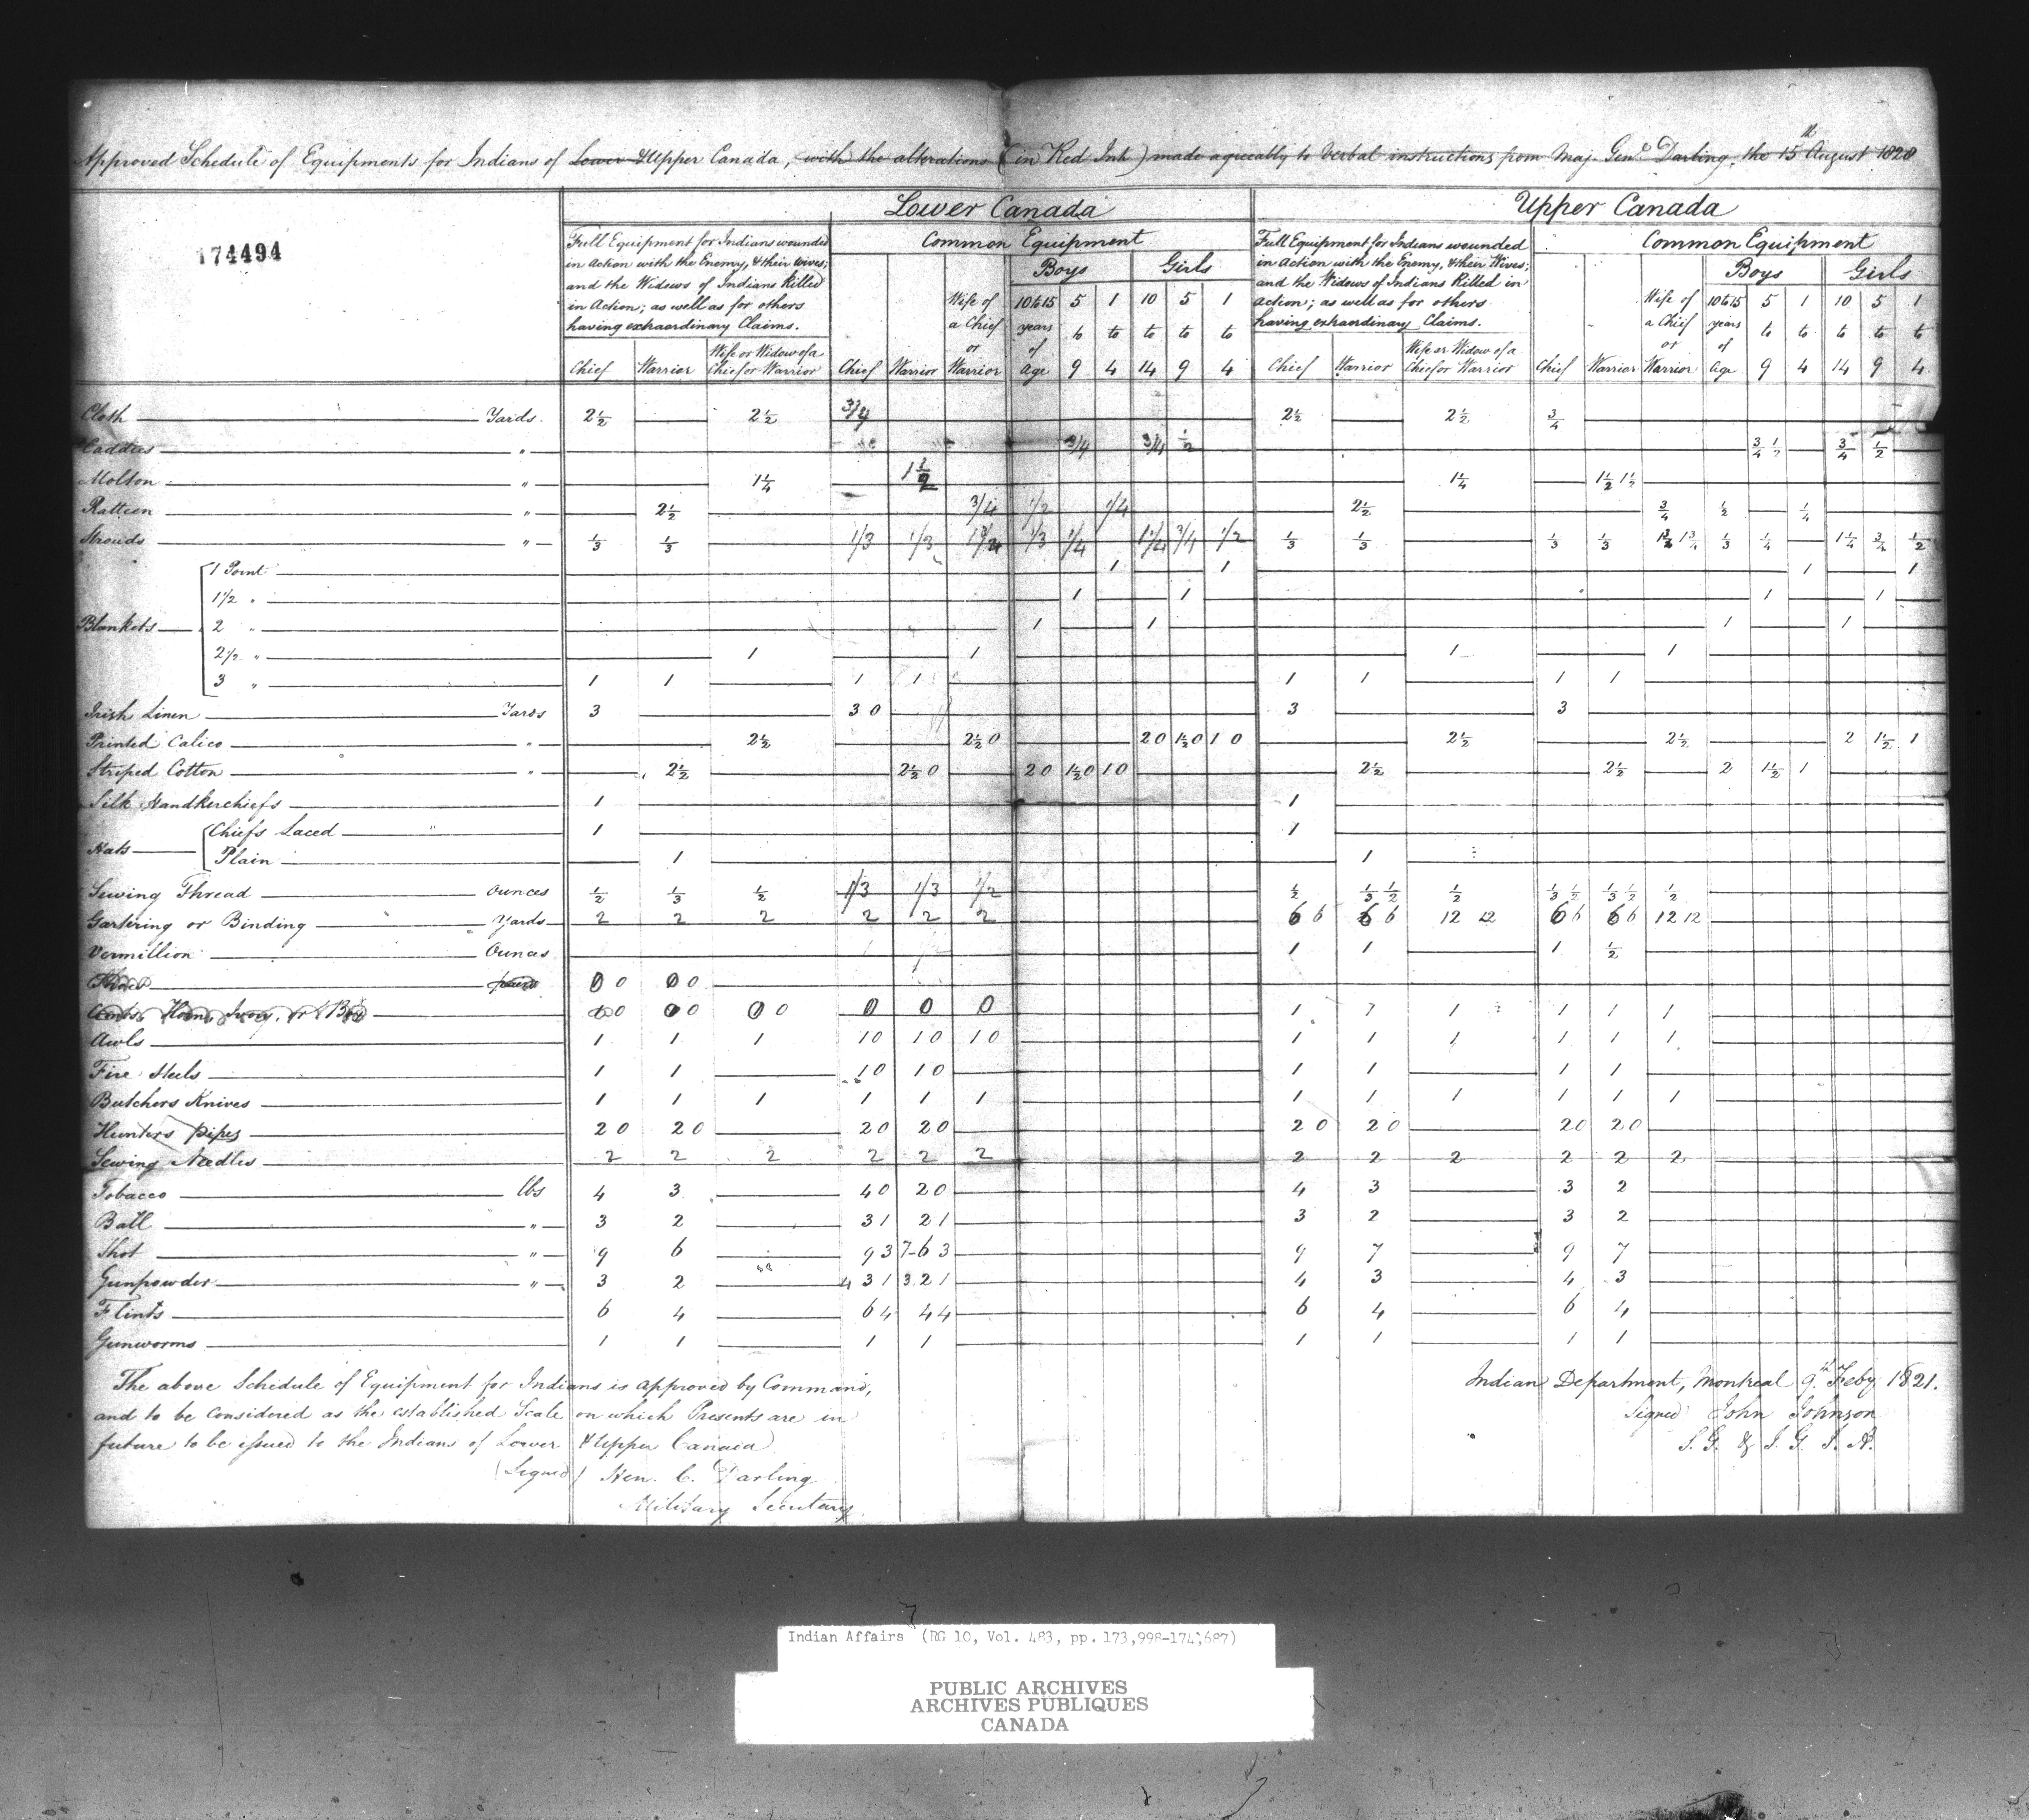 Approved Schedule of Equipments for Indians of Lower & Upper Canada, with the alterations (in Red Ink) made agreeably to Verbal instructions from Maj. Genl Darling, the 15th August 1828
174494
Lower Canada
Upper Canada
Full Equipment for Indians wounded
in Action with the Enemy, & their wives;
and the Widows of Indians Killed
in Action; as well as for others
having extraordinary Claims.
Common Equipment
Boys
Girls
Full Equipment for Indians wounded
in Action with the Enemy, & their Wives;
and the Widows of Indians Killed in
Action; as well as for others
having extraordinary Claims.
Common Equipment
Boys
Girls
Chief Warrior Wife or Widow of a Chief or Warrior Chief Warrior Wife of a Chief or Warrior 10 to 15 years of Age 5 to 9 1 to 4 10 to 14 5 to 9 1 to 4
Chief Warrior Wife or Widow of a Chief or Warrior Chief Warrior Wife of a Chief or Warrior 10 to 15 years of Age 5 to 9 1 to 4 10 to 14 5 to 9 1 to 4
Cloth Yards. 2½ 2½ 3/4 2½ 2½ ¾
Caddies " 3/4 3/4 ½ ¾ ½ ¾ ½
Molton " 1¼ 1½ 1¼ 1½ 1½
Ratteen " 2½ 3/4 1/2 1/4 2½ ¾ ½ ¼
Strouds " ⅓ ⅓ 1/3 1/3 1¾ 1/3 1/4 1¼ 3/4 1/2 ⅓ ⅓ ⅓ ⅓ 1¾ 1¾ ⅓ ¼ 1¼ ¾ ½
Blankets
1 Point 1 1 1 1
1½ " 1 1 1 1
2 " 1 1 1 1
2½ " 1 1 1 1
3 " 1 1 1 1 1 1 1 1
Irish Linen Yards 3 3 0 3 3
Printed Calico " 2½ 2½ 0 2 0 1½ 0 1 0 2½ 2½ 2 1½ 1
Striped Cotton " 2½ 2½ 0 2 0 1½ 0 1 0 2½ 2½ 2 1½ 1
Silk Handkerchiefs 1 1
Hats
Chiefs Laced 1 1
Plain 1 1
Sewing Thread Ounces ½ ⅓ ½ 1/3 1/3 1/2 ½ ⅓ ½ ½ ⅓ ½ ⅓ ½ ½
Gartering or Binding Yards 2 2 2 2 2 2 6 6 6 6 12 12 6 6 6 6 12 12
Vermillion Ounces 1 1 1 ½
Shoes pairs 0 0 0 0
Combs, Horn, Ivory, or Box 0 0 0 0 0 0 0 0 1 1 1 1 1 1
Awls 1 1 1 1 0 1 0 1 0 1 1 1 1 1 1
Fire Steels 1 1 1 0 1 0 1 1 1 1
Butchers Knives 1 1 1 1 1 1 1 1 1 1 1 1
Hunters Pipes 2 0 2 0 2 0 2 0 2 0 2 0 2 0 2 0
Sewing Needles 2 2 2 2 2 2 2 2 2 2 2 2
Tobacco lbs 4 3 4 0 2 0 4 3 3 2
Ball " 3 2 3 1 2 1 3 2 3 2
Shot " 9 6 9 3 7-6 3 9 7 9 7
Gunpowder " 3 2 4 3 1 3 2 1 4 3 4 3
Flints 6 4 6 4 4 4 6 4 6 4
Gunworms 1 1 1 1 1 1 1 1
The above Schedule of Equipment for Indians is approved by Command,
and to be considered as the established Scale on which Presents are in
future to be issued to the Indians of Lower & Upper Canada
(Signed) Hen. C. Darling
Military Secretary
Indian Department, Montreal 9th Feby 1821.
Signed John Johnson
S. G. & I. G. I. A.
Indian Affairs (RG 10, Vol. 483, pp. 173,998-174,687)
PUBLIC ARCHIVES
ARCHIVES PUBLIQUES
CANADA